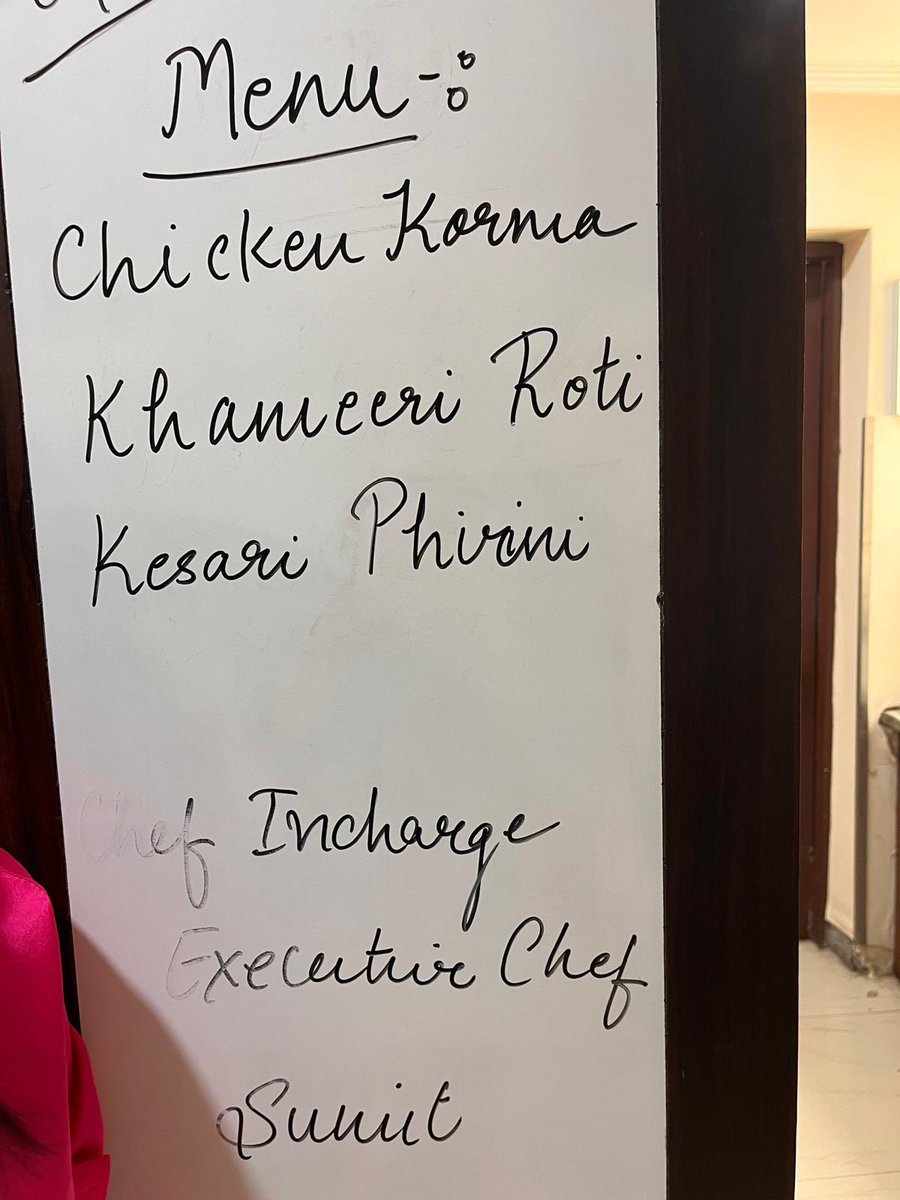 Menu -:
Chicken Korma
Khameeri Roti
Kesari Phirini
Chef Incharge
Executive Chef
Sumit